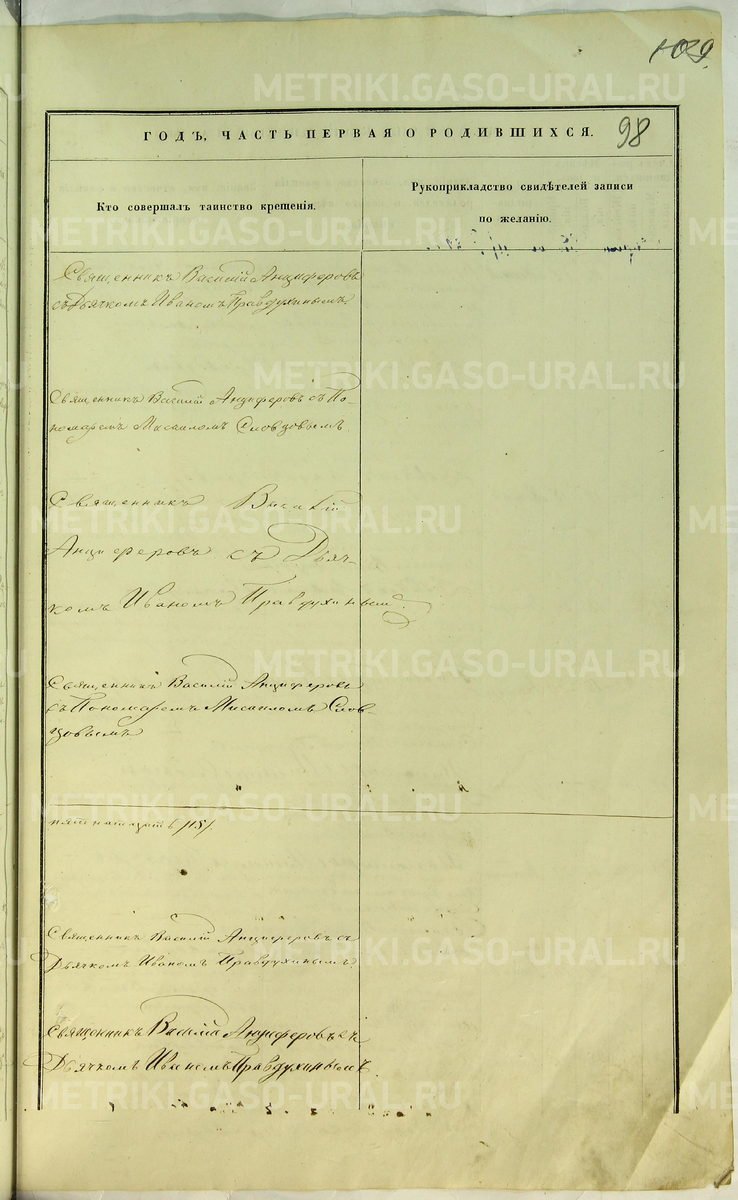 109
ГОДЪ, ЧАСТЬ ПЕРВАЯ О РОДИВШИХСЯ.
98
Кто совершалъ таинство крещенія.
Рукоприкладство свидѣтелей записи
по желанію.
Священникъ Василій Анциферовъ
съ Дьячкомъ Иваномъ Правдухинымъ.
Священникъ Василій Анциферовъ съ По-
номаремъ Мисаиломъ Словцовымъ
Священникъ Василій
Анциферовъ съ Дьяч-
комъ Иваномъ Правдухинымъ.
Священникъ Василій Анциферовъ
съ Пономаремъ Мисаиломъ Слов-
цовымъ
пятнатцать /15/.
Священникъ Василій Анциферовъ съ
Дьячкомъ Иваномъ Правдухинымъ.
Священникъ Василій Анциферовъ съ
Дьячкомъ Иваномъ Правдухинымъ
METRIKI.GASO-URAL.RU